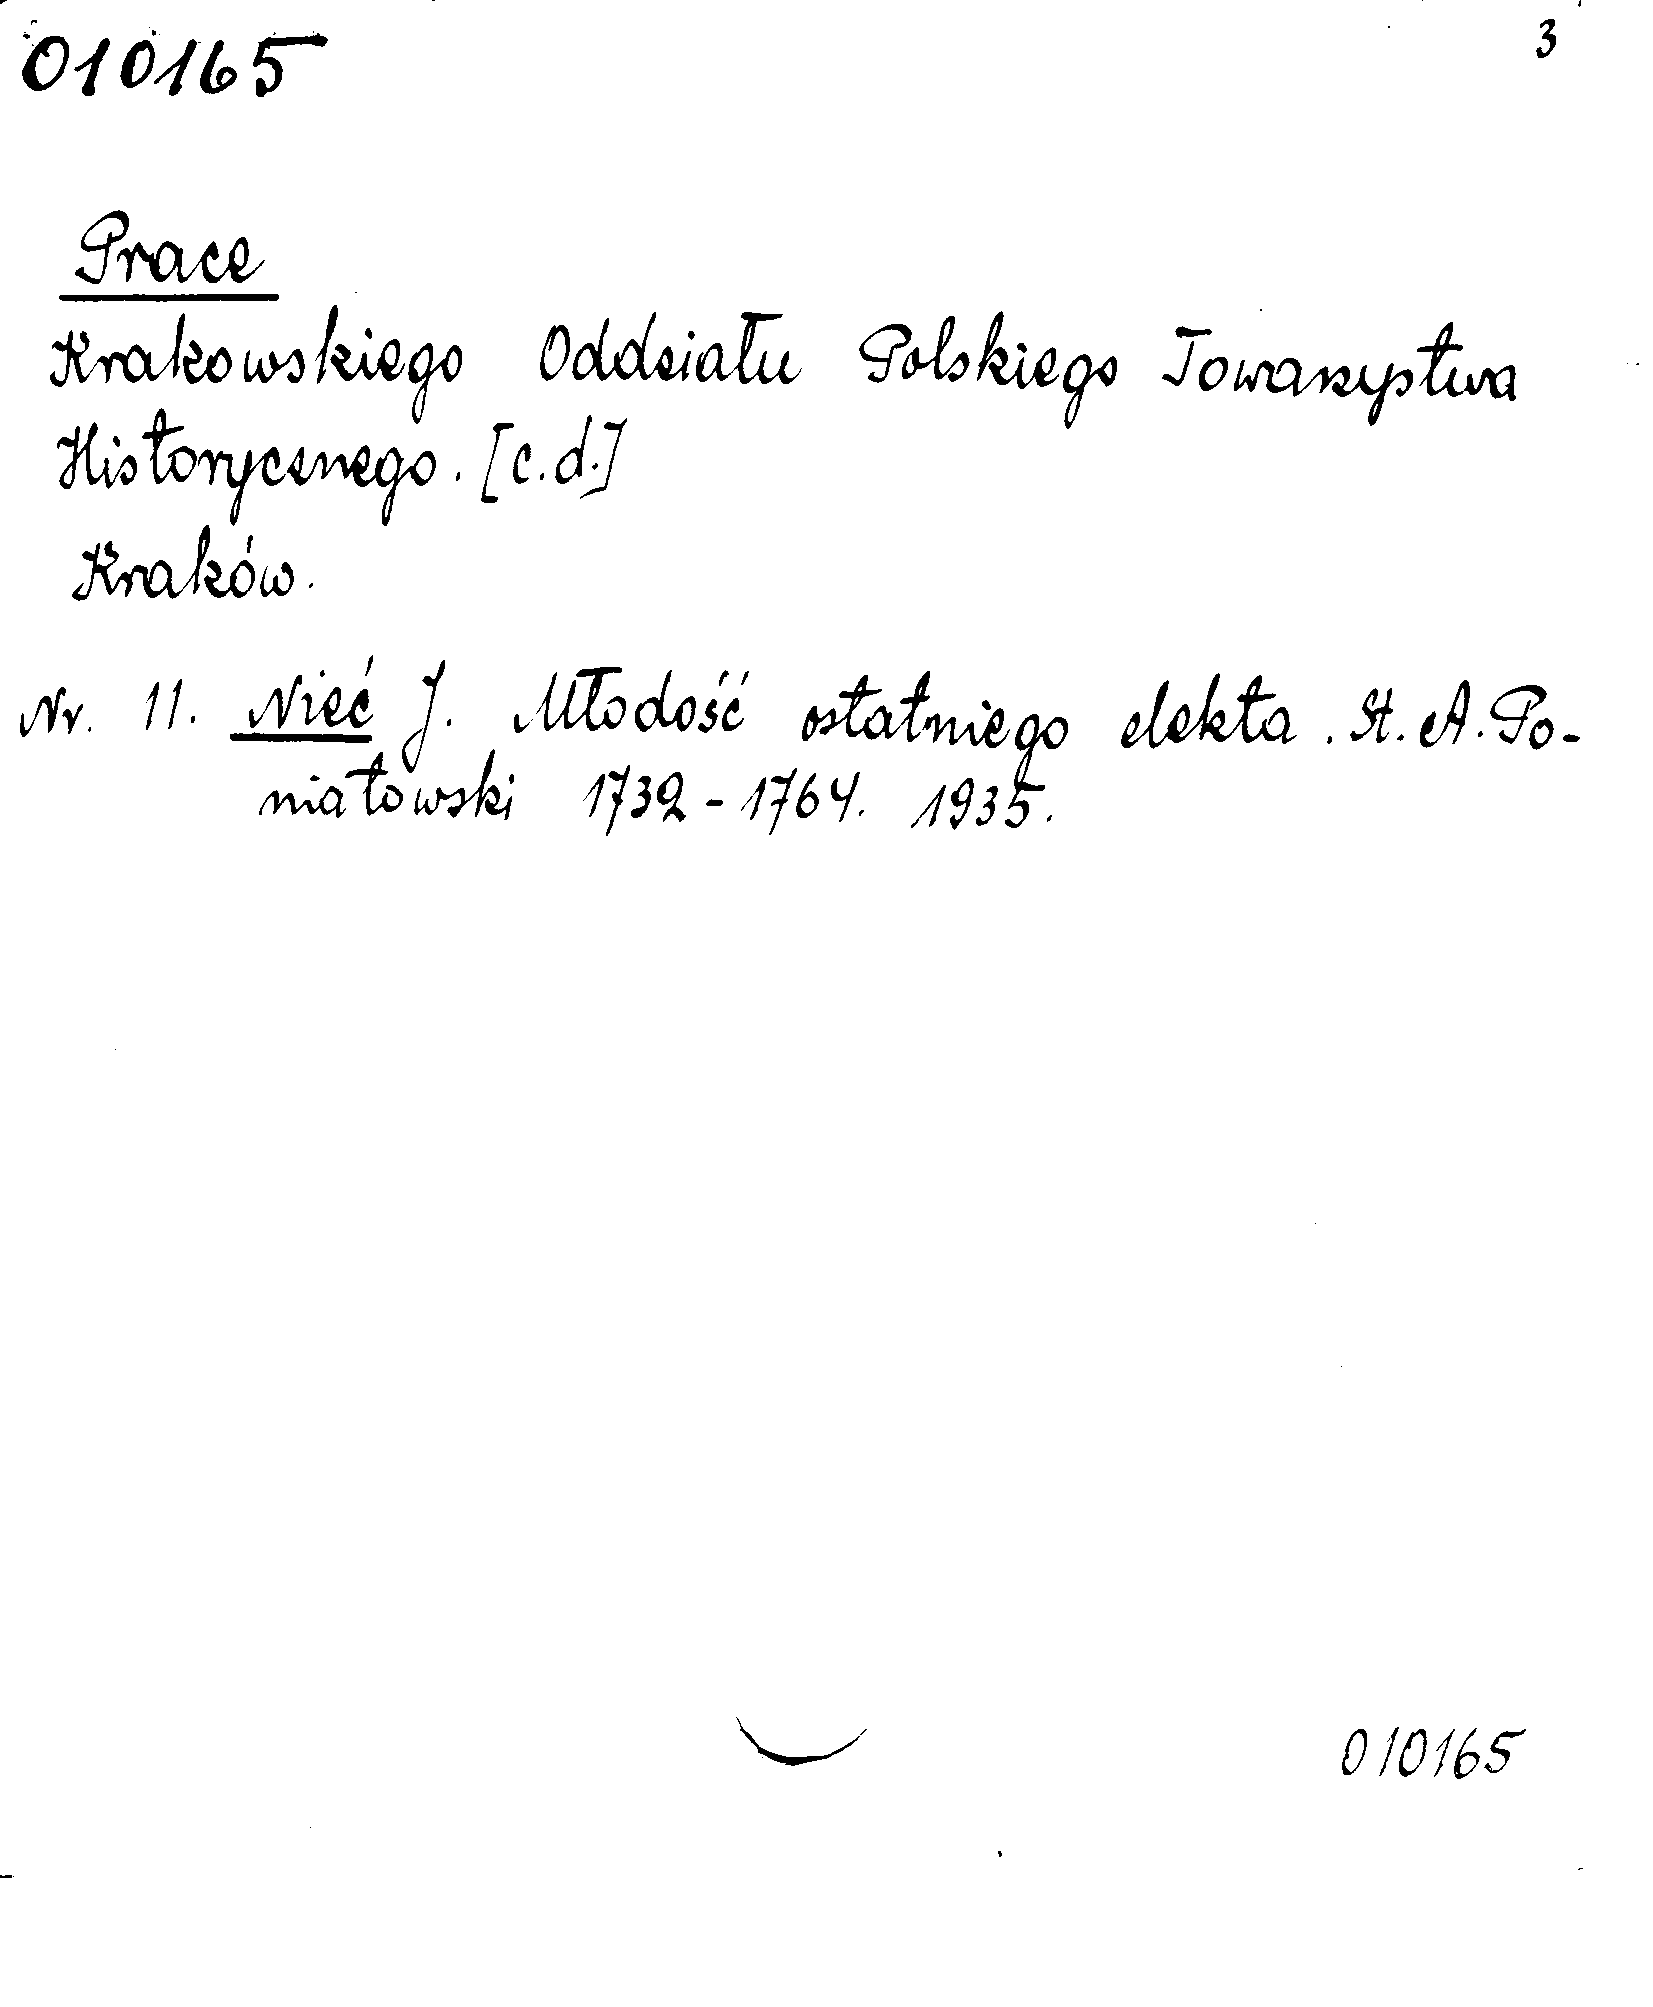 010165
3
Prace
Krakowskiego Oddziału Polskiego Towarzystwa
Historycznego. [c.d.]
Kraków.
Nr. 11. Nieć J. Młodość ostatniego elekta. St. A. Po-
niatowski 1732-1764. 1935.
010165